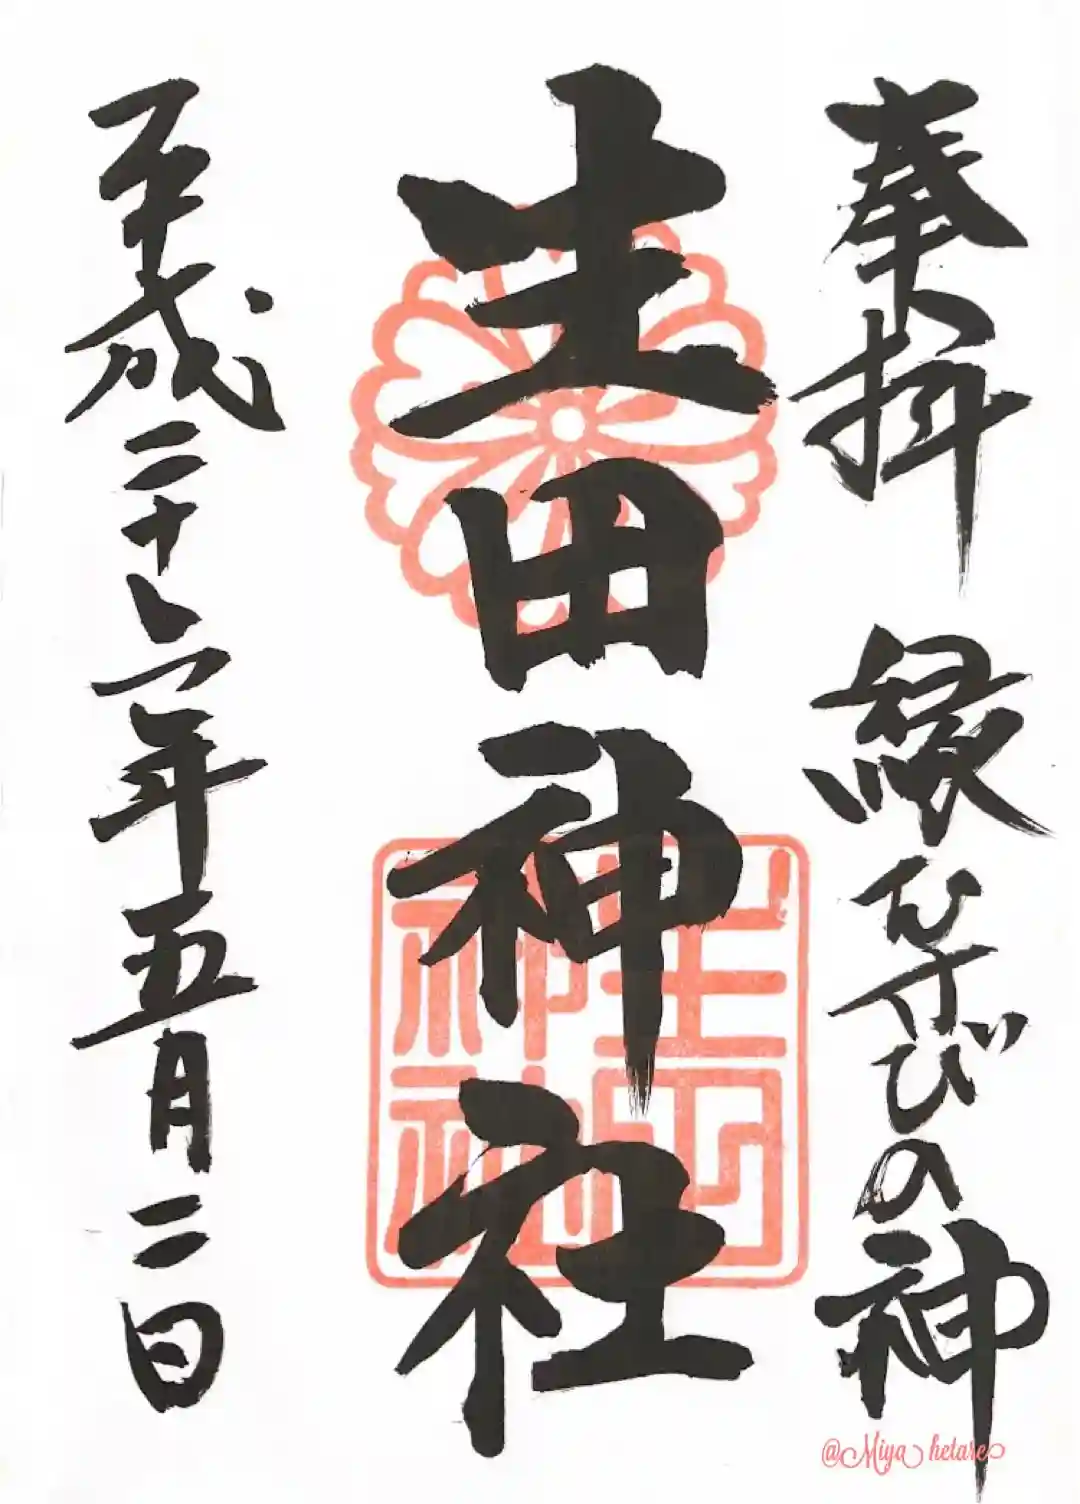 奉拝 縁むすびの神
生田神社
生田神社
平成二十六年五月二日
@Miya hetare